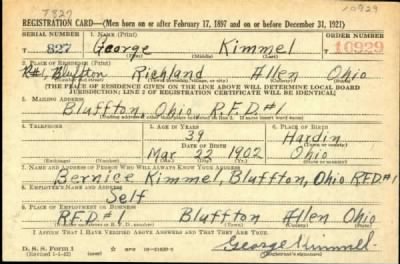 T827 10929
REGISTRATION CARD—(Men born on or after February 17, 1897 and on or before December 31, 1921)
SERIAL NUMBER 1. NAME (Print) ORDER NUMBER
T 827 George Kimmel 10929
(First) (Middle) (Last)
2. PLACE OF RESIDENCE (Print)
R#1, Bluffton Richland Allen Ohio
(Number and street) (Town, township, village, or city) (County) (State)
[THE PLACE OF RESIDENCE GIVEN ON THE LINE ABOVE WILL DETERMINE LOCAL BOARD
JURISDICTION; LINE 2 OF REGISTRATION CERTIFICATE WILL BE IDENTICAL]
3. MAILING ADDRESS
Bluffton, Ohio R.F.D.#1
[Mailing address if other than place indicated on line 2. If same insert word same]
4. TELEPHONE 5. AGE IN YEARS 6. PLACE OF BIRTH
39 Hardin
DATE OF BIRTH (Town or county)
Mar 22 1902 Ohio
(Exchange) (Number) (Mo.) (Day) (Yr.) (State or country)
7. NAME AND ADDRESS OF PERSON WHO WILL ALWAYS KNOW YOUR ADDRESS
Bernice Kimmel, Bluffton, Ohio R.F.D.#1
8. EMPLOYER'S NAME AND ADDRESS
Self
9. PLACE OF EMPLOYMENT OR BUSINESS
R.F.D.#1 Bluffton Allen Ohio
(Number and street or R. F. D. number) (Town) (County) (State)
I AFFIRM THAT I HAVE VERIFIED ABOVE ANSWERS AND THAT THEY ARE TRUE.
D. S. S. Form 1
(Revised 1-1-42) (over)
George Kimmel